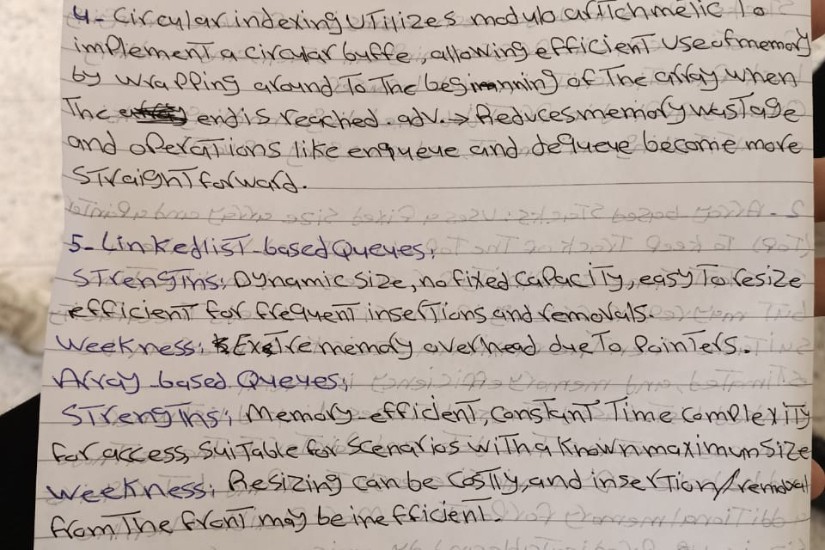 4- Circular indexing UTilizes modulo ariTchmeTic To
implemenT a circular buffe, allowing efficienT use of memory
by wrapping around To The beginning of The array when
The end is reached. adv. → Reduces memory wasTage
and operaTions like enqueue and dequeue become more
STraighTforward.
5- LinkedlisT-based Queues;
STrengThs; Dynamic size, no fixed capaciTy, easy To resize
efficienT for frequenT inserTions and removals.
Weekness; ExTre memory overhead due To PoinTers.
Array-based Queues;
STrengThs; Memory-efficienT, consTanT Time complexiTy
for access, SuiTable for Scenarios wiTh a known maximum Size
Weekness; Resizing can be CosTly, and inserTion/removal
from The fronT may be inefficienT.